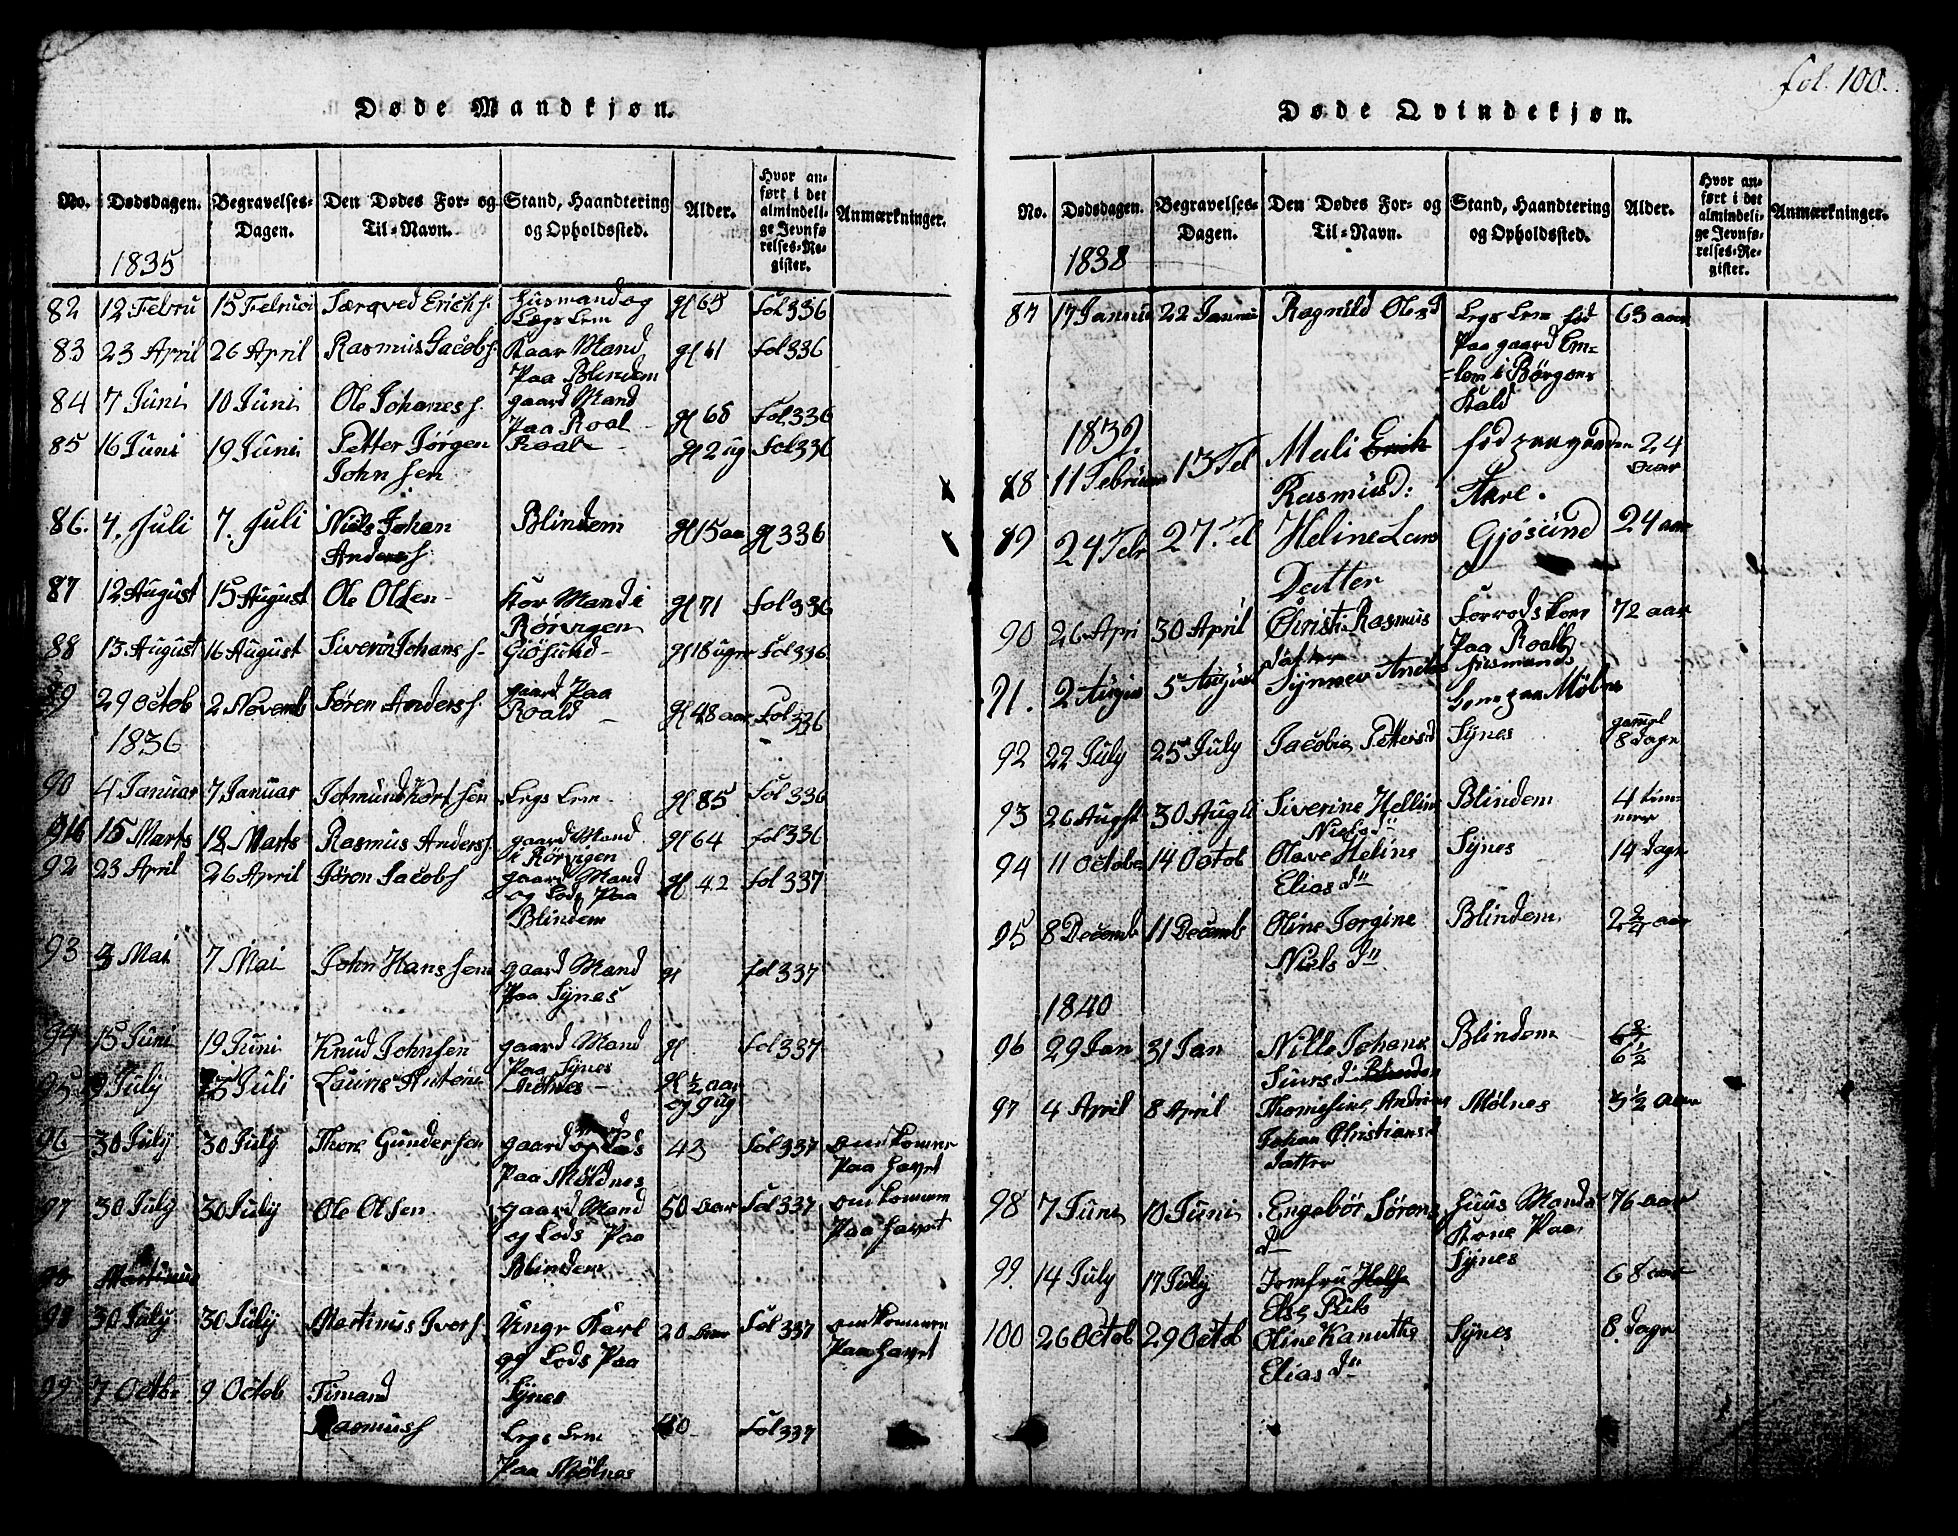 fol. 100.
Døde Mandkjøn.
No. Dødsdagen. Begravelses-Dagen. Den Dødes For- og Til-Navn. Stand, Haandtering og Opholdssted. Alder. Hvor anført i det almindelige Jevnførelses-Register. Anmærkninger.
1835
82 12 Febru 15 Februa Erichs. Huusmand og
Legs Lem gl 65 Fol 336
83 23 April 26 April Rasmus Jacobs. Kaar Mand
Paa Blindem gl 61 Fol 336
84 7 Juni 10 Juni Ole Johanes. gaard Mand
Paa Roal gl 68 Fol 336
85 16 Juni 19 Juni Petter Jørgen Roal gl 2 ug Fol 336
John sen
86. 4. Juli 7. Juli Niels Johan Blindem gl 15 aa gl 336
Anders.
87 12 August 15 August Ole Olsen Kor Mand i
Rørvigen gl 71 Fol 336
88 13 August 16 August Siverin Johans. Giøsund gl 18 uger Fol 336
89 29 Octob 2 Novemb Søren Anders. gaard Paa
Roald gl 48 aar Fol 336
1836
90 4 Januar 7 Januar Legs Lem gl 85 Fol 336
91 15 Marts 18 Marts Rasmus Anders. gaard Mand
i Rørvigen gl 64 Fol 336
92 23 April 26 April Jøron Jacobs. gaard Mand
og Lods Paa
Blindem gl 42 Fol 337
93 3 Mai 7 Mai John Hans sen gaard Mand
Paa Synes gl Fol 337
94 15 Juni 19 Juni Knud Johnsen gaard Mand
Paa Synes gl Fol 337
95 9 July Juli Laurits Anton Molnes gl ½ aar
og 9 ug
96 30 July 30 July Thore Gundersen gaard og Lods
Paa Moldnes 43 Fol 337 omkommen
Paa havet
97 30 July 30 July Ole Olsen gaard Mand
og Lods Paa
Blindem 50 aar Fol 337 omkommen
Paa havet
98 Martinus
98 30 July 30 July Martinus Ivers. Ungr Karl
og Lods Paa
Synes 20 aar Fol 337 omkommen
Paa havet
99 7 Octbr 9 Octob Timand
Rasmus. Legs Lem
Paa Mølnes 40 Fol 337
Døde Qvindekjøn.
No. Dødsdagen. Begravelses-Dagen. Den Dødes For- og Til-Navn. Stand, Haandtering og Opholdssted. Alder. Hvor anført i det almindelige Jevnførelses-Register. Anmærkninger.
1838
87 17 Januu 22 Januu Ragnild Olesd Legs Lem fød
Paa gaard Em=
=lem i Børgens
Kald 63 aar
1839.
88 11 Februar 13 Feb Mali Erik
Rasmusd: fød paa gaarden 24
aar
89 24 Febr 27. Feb Heline Lars
Datter Gjøsund 24 aar
90 26 Apri 30 April Christi Rasmus
datter
Paa Roald 72 aar
91. 2 August 5 August Synnev Andes Huusmands
paa Mølnes
92 22 July 25 July Jacobie Pettersd Synes gammel
8 dage
93 26 Augst 30 Augst Siverine Hellin
Nielsdtr Blindem 4 tim-
mer
94 11 October 14 Octob Olave Heline
Elias dtr Synes 14 dage
95 8 Decemb 11 Decemb Oline Jorgine
Niels Dtr Blindem 2 2/4 aar
1840
96 29 Jan 31 Jan Nille Johane
Siursd Blindem Blindem 6 ½
97 4 April 8 April Thomesine Andrea
Johan Christians
datter Mølnes 3 ½ aar
98 7 Juni 10 Juni Engebør Sørens
d Huus Mands
Kone Paa
Synes 76 aar
99. 14 July 17 July Jomfru Helse
Else Riis 68 aar
100 26 Octob 29 Octob Oline Kanutha
Elias dtr Synes 8. dage